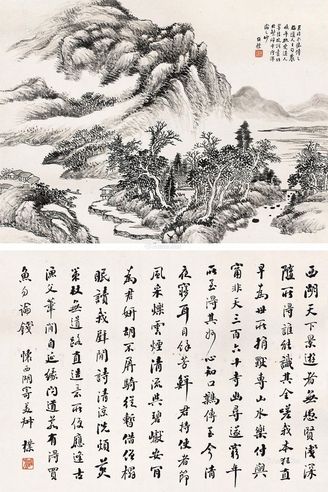 西湖天下景遊者無愚賢深淺
隨所得誰能識其全嗟我本狂直
早為世所捐獨專山水樂付與
甯非天三百六十寺幽尋遂窮年
所至得其妙心知口難傳至今清
夜夢耳目餘芳鮮君持使者節
風采爍雲煙清流與碧巘安肯
為君妍胡不屏騎從暫借僧榻
眠讀我壁間詩清涼洗煩煎
策杖無道路直造意所便應逢古
漁父葦間自延緣問道若有得買
魚勿論錢 懷西湖寄美叔 樸